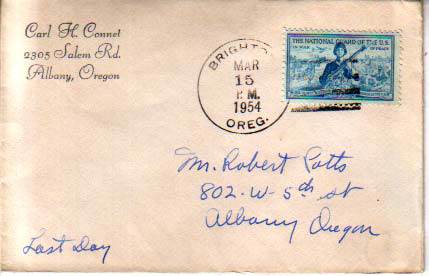 Carl H. Connet
2305 Salem Rd.
Albany, Oregon
BRIGHTO
MAR
15
P.M.
1954
OREG.
THE NATIONAL GUARD OF THE U.S.
IN WAR IN PEACE
Mr. Robert Potts
802-W-5th st
Albany Oregon
Last Day